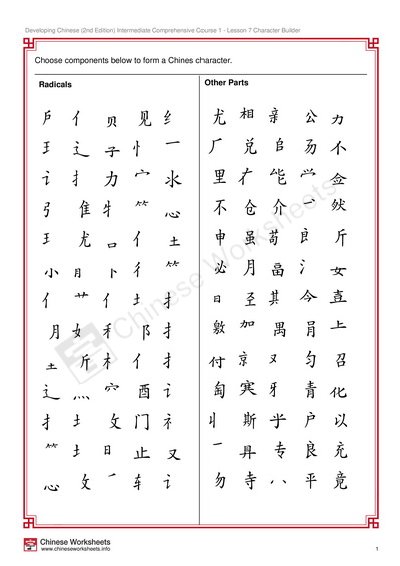 Developing Chinese (2nd Edition) Intermediate Comprehensive Course 1 - Lesson 7 Character Builder
Choose components below to form a Chines character.
Radicals
户 亻 贝 见 纟
王 辶 子 忄 一
讠 扌 力 宀 氺
弓 隹 牜 ⺮ 心
王 尤 口 亻 土
小 目 卜 彳 ⺮
亻 艹 亻 土 扌
月 女 禾 阝 扌
土 斤 木 亻 扌
辶 灬 穴 酉 讠
扌 土 攵 门 礻
⺮ 土 日 止 又
心 攵 车 讠
Other Parts
尤 相 亲 公 力
厂 兑 不
里 能 佥
不 仓 介 然
申 虽 苟 斤
必 月 畐 氵 女
日 至 其 今 壴
敫 加 禺 肙 上
付 京 又 匀 召
匋 寒 牙 青 化
斯 乎 户 以
具 专 良 充
勿 寺 八 平 竟
Chinese Worksheets
Chinese Worksheets
www.chineseworksheets.info
1